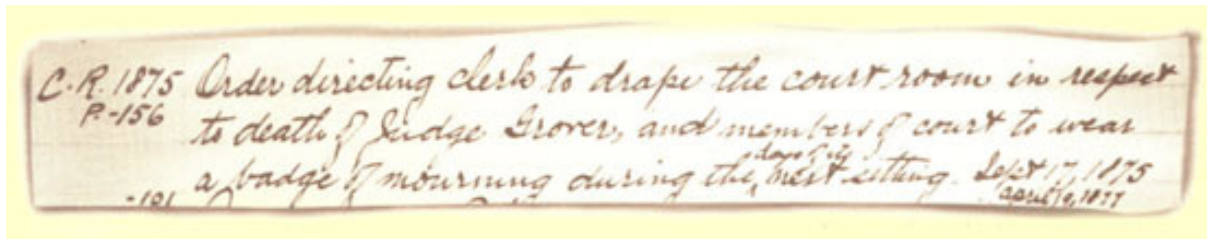 C. R. 1875 Order directing clerk to drape the court room in respect
P.-156 to death of Judge Grover, and members of court to wear
days of its
a badge of mourning during the next sitting. Sept 17, 1875
-191 april 9, 1877